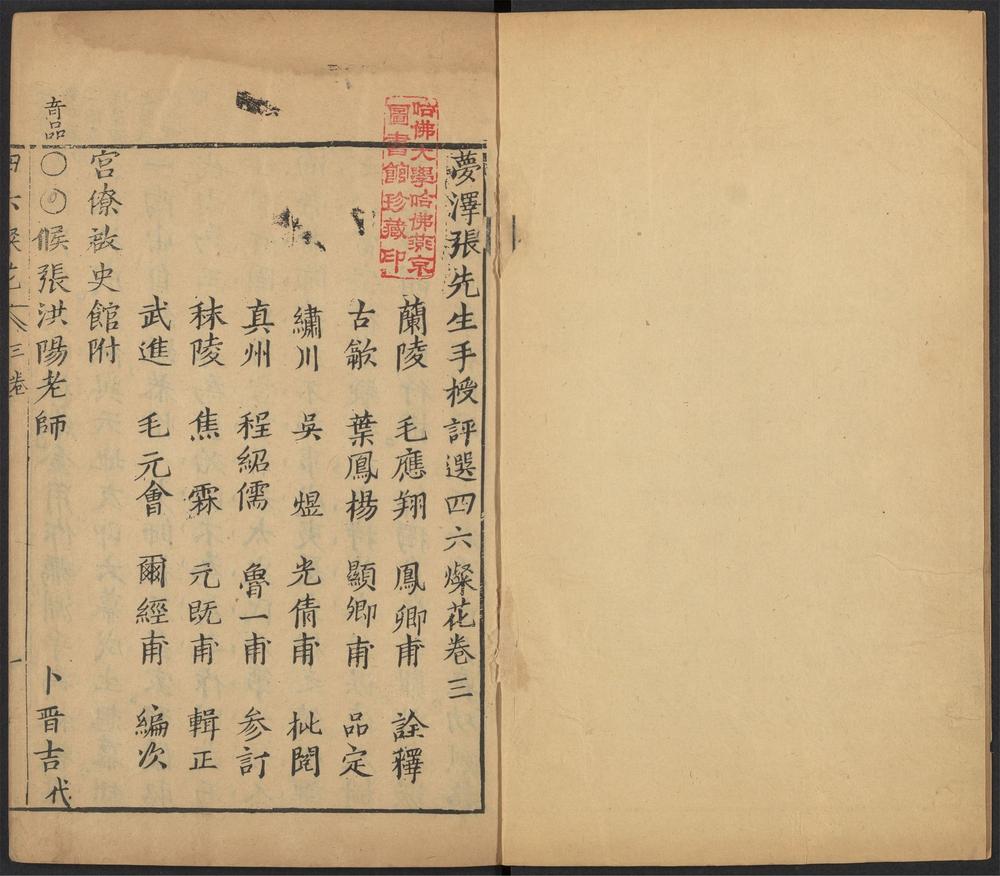 夢澤張先生手授評選四六燦花卷三
蘭陵 毛應翔 鳳卿甫 詮釋
古歙 葉鳳楊 顯卿甫 品定
繡川 吳煜 光倩甫 批閱
真州 程紹儒 魯一甫 參訂
秣陵 焦霖 元既甫 輯正
武進 毛元會 爾經甫 編次
宮僚啟史館附
奇品
〇〇候張洪陽老師 卜晋吉代
四六燦花 三卷 一
哈佛大學哈佛燕京
圖書館珍藏印